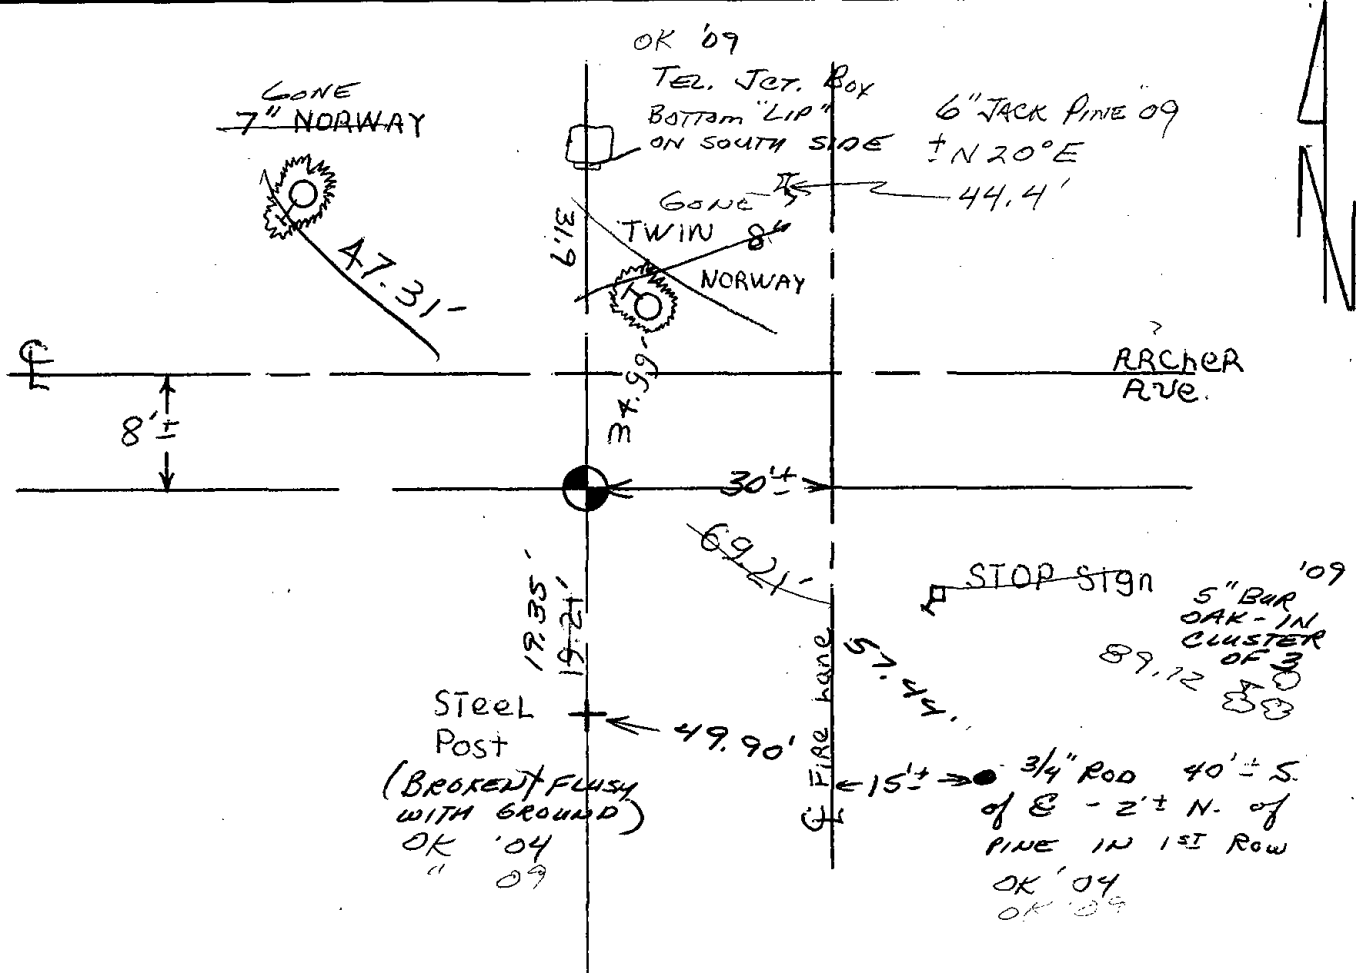 OK '09
TEL. JCT. BOX
BOTTOM "LIP"
ON SOUTH SIDE
GONE
7" NORWAY
6" JACK PINE '09
± N 20° E
44.4'
GONE
TWIN 8"
NORWAY
31.9
47.31'
34.99'
℄
ARCheR
AVe.
8'±
30'±
69.21'
STOP Sign
'09
5" BUR
OAK - IN
CLUSTER
OF 3
89.12
19.35'
19.21'
57.44'
STeeL
Post
(BROKEN FLUSH
WITH GROUND)
OK '04
" 09
49.90'
℄ FIRe Lane
15'±
3/4" ROD 40'± S.
of ℄ - 2'± N. of
PINE IN 1ST ROW
OK '04
OK '09
N